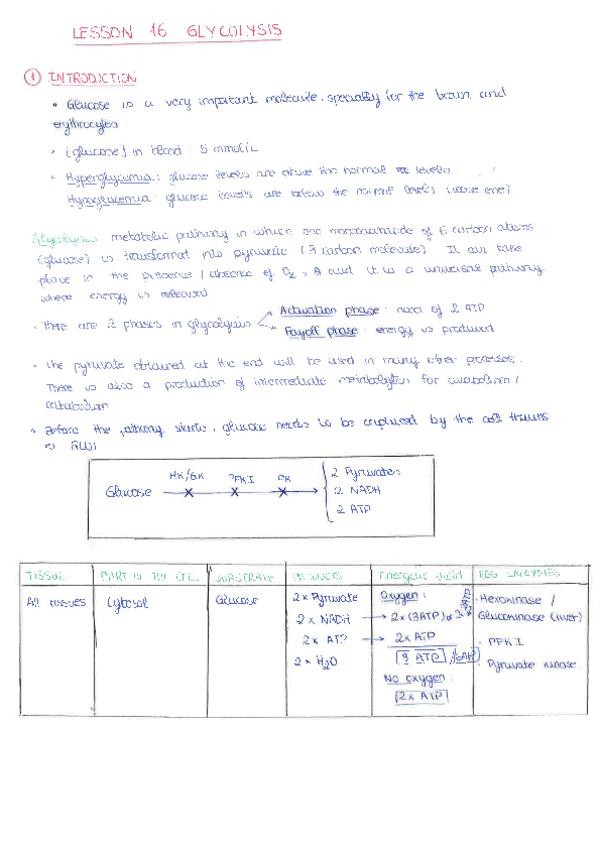 LESSON 16 GLYCOLYSIS
① INTRODUCTION
• Glucose is a very important molecule, specially for the brain and
erythrocytes.
• [glucose] in blood: 5 mmol/L
• Hyperglycemia: glucose levels are above the normal levels.
Hypoglycemia: glucose levels are below the normal levels (worse one)
Glycolysis: metabolic pathway in which one monosaccharide of 6 carbon atoms
(glucose) is transformed into pyruvate (3 carbon molecule). It can take
place in the presence / absence of O2, and it is a universal pathway
where energy is released
• There are 2 phases in glycolysis
Activation phase: need of 2 ATP
Payoff phase: energy is produced
• The pyruvate obtained at the end will be used in many other processes.
There is also a production of intermediate metabolytes for anabolism /
catabolism.
• Before the pathway starts, glucose needs to be captured by the cell thanks
to GLUT
HK/GK PFK1 PK
Glucose
2 Pyruvates
2 NADH
2 ATP
TISSUE PART OF THE CELL SUBSTRATE PRODUCTS Energetic yield REG ENZYMES
All tissues Cytosol Glucose
2x Pyruvate
2x NADH
2x ATP
2x H2O
Oxygen:
2x(3ATP) or
2x ATP
8 ATP
No oxygen:
2x ATP
• Hexokinase /
Glucokinase (liver)
• PFK 1
• Pyruvate kinase